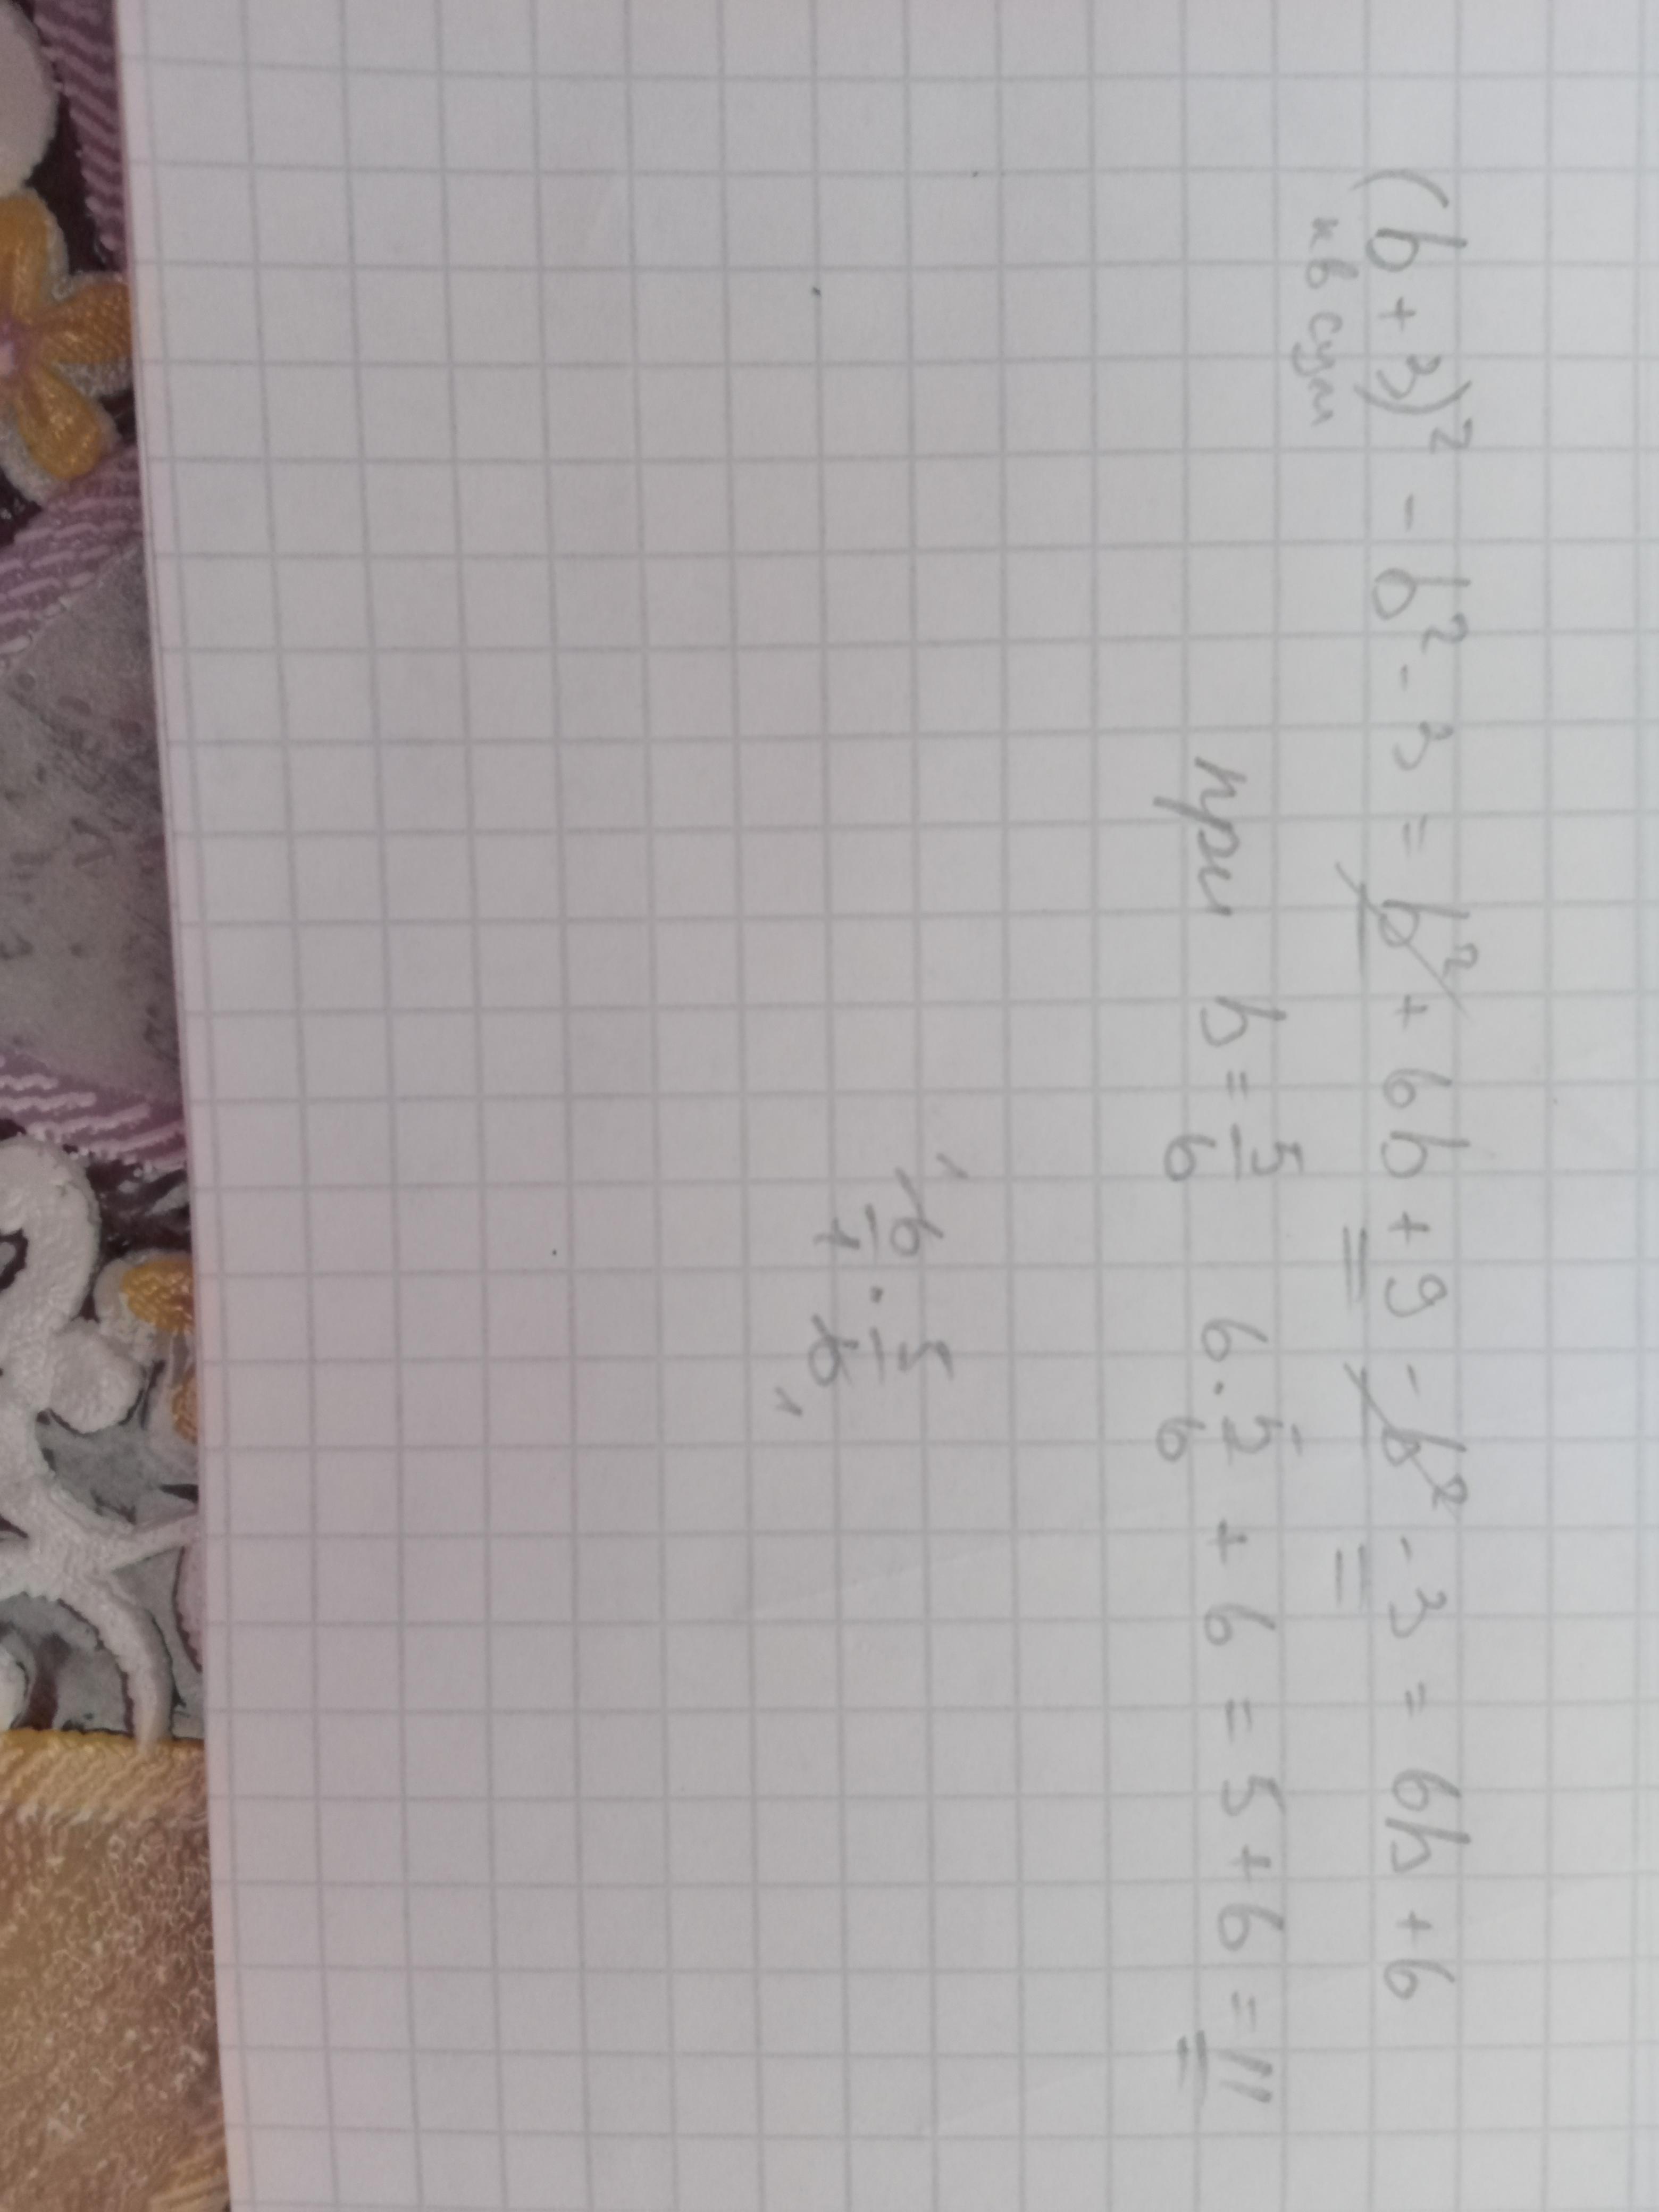 (b + 3)² - b² - 3 = b² + 6b + 9 - b² - 3 = 6b + 6
кв сум
при b = 5/6 6 · 5/6 + 6 = 5 + 6 = 11
1 6/1 · 5/6 1